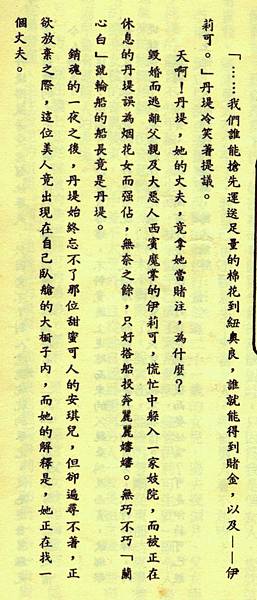 「……我們誰能搶先運送足量的棉花到紐奧良，誰就能得到賭金，以及——伊
莉可。」丹堤冷笑著提議。
天啊！丹堤，她的丈夫，竟拿她當賭注，為什麼？
毀婚而逃離父親及大惡人西賓魔掌的伊莉可，慌忙中躲入一家妓院，而被正在
休息的丹堤誤為烟花女而强佔，無奈之餘，只好搭船投奔麗麗嬸嬸。無巧不巧「蘭
心白」號輪船的船長竟是丹堤。
銷魂的一夜之後，丹堤始終忘不了那位甜蜜可人的安琪兒，但卻遍尋不著，正
欲放棄之際，這位美人竟出現在自己臥艙的大櫥子內，而她的解釋是，她正在找一
個丈夫。